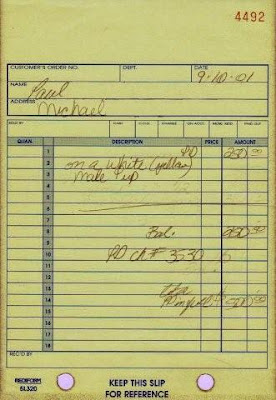 4492
CUSTOMER'S ORDER NO. DEPT. DATE
9-10-01
NAME
Paul
ADDRESS
Michael
SOLD BY CASH C.O.D. CHARGE ON ACCT. MDSE. RETD. PAID OUT
QUAN. DESCRIPTION PRICE AMOUNT
1 PD 250
2 on a white (yellow)
3 make up
4
5
6
7
8 Bal.
9
10 PD ch # 3530
11
12
13
14
15
16
17
18
REC'D BY
REDIFORM
5L320
KEEP THIS SLIP
FOR REFERENCE